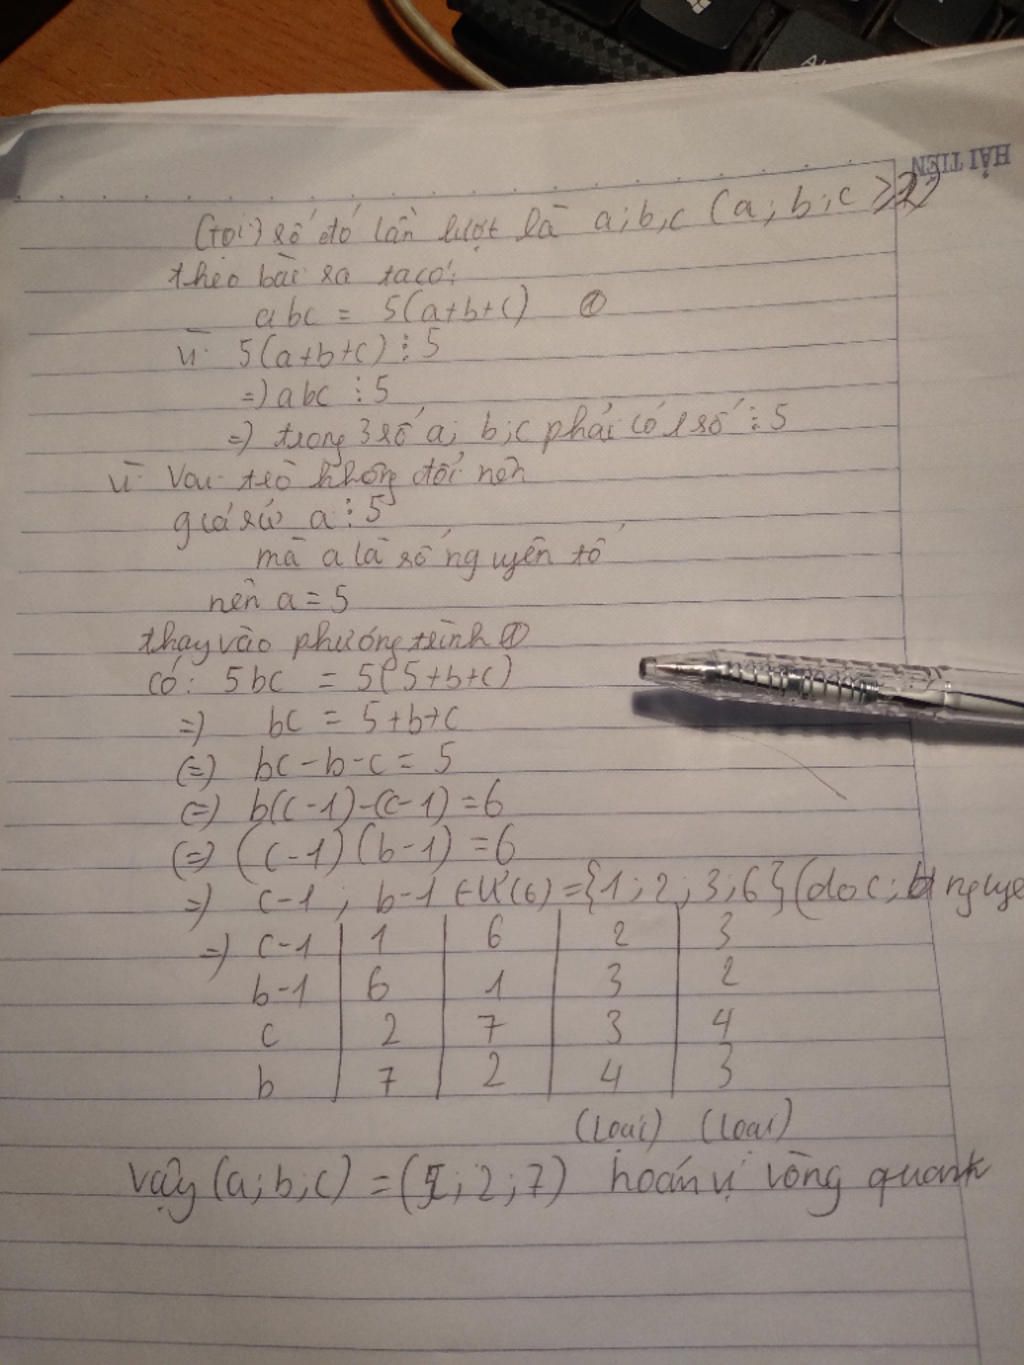 HẢI TIẾN
(gọi) số đó lần lượt là a;b,c (a;b;c ≥ 2)
theo bài ra ta có:
abc = 5(a+b+c) ①
vì 5(a+b+c) ⋮ 5
=) abc ⋮ 5
=) trong 3 số a; b;c phải có 1 số ⋮ 5
vì vai trò không đổi nên
giả sử a ⋮ 5
mà a là số nguyên tố
nên a = 5
thay vào phương trình ①
có: 5bc = 5(5+b+c)
=) bc = 5+b+c
(=) bc-b-c = 5
(=) b(c-1)-(c-1) = 6
(=) (c-1)(b-1) = 6
=) c-1; b-1 ∈ Ư(6) = {1; 2; 3; 6} (do c; b nguyê
=) c-1 1 6 2 3
b-1 6 1 3 2
c 2 7 3 4
b 7 2 4 3
(loại) (loại)
Vậy (a;b;c) = (5;2;7) hoán vị vòng quanh